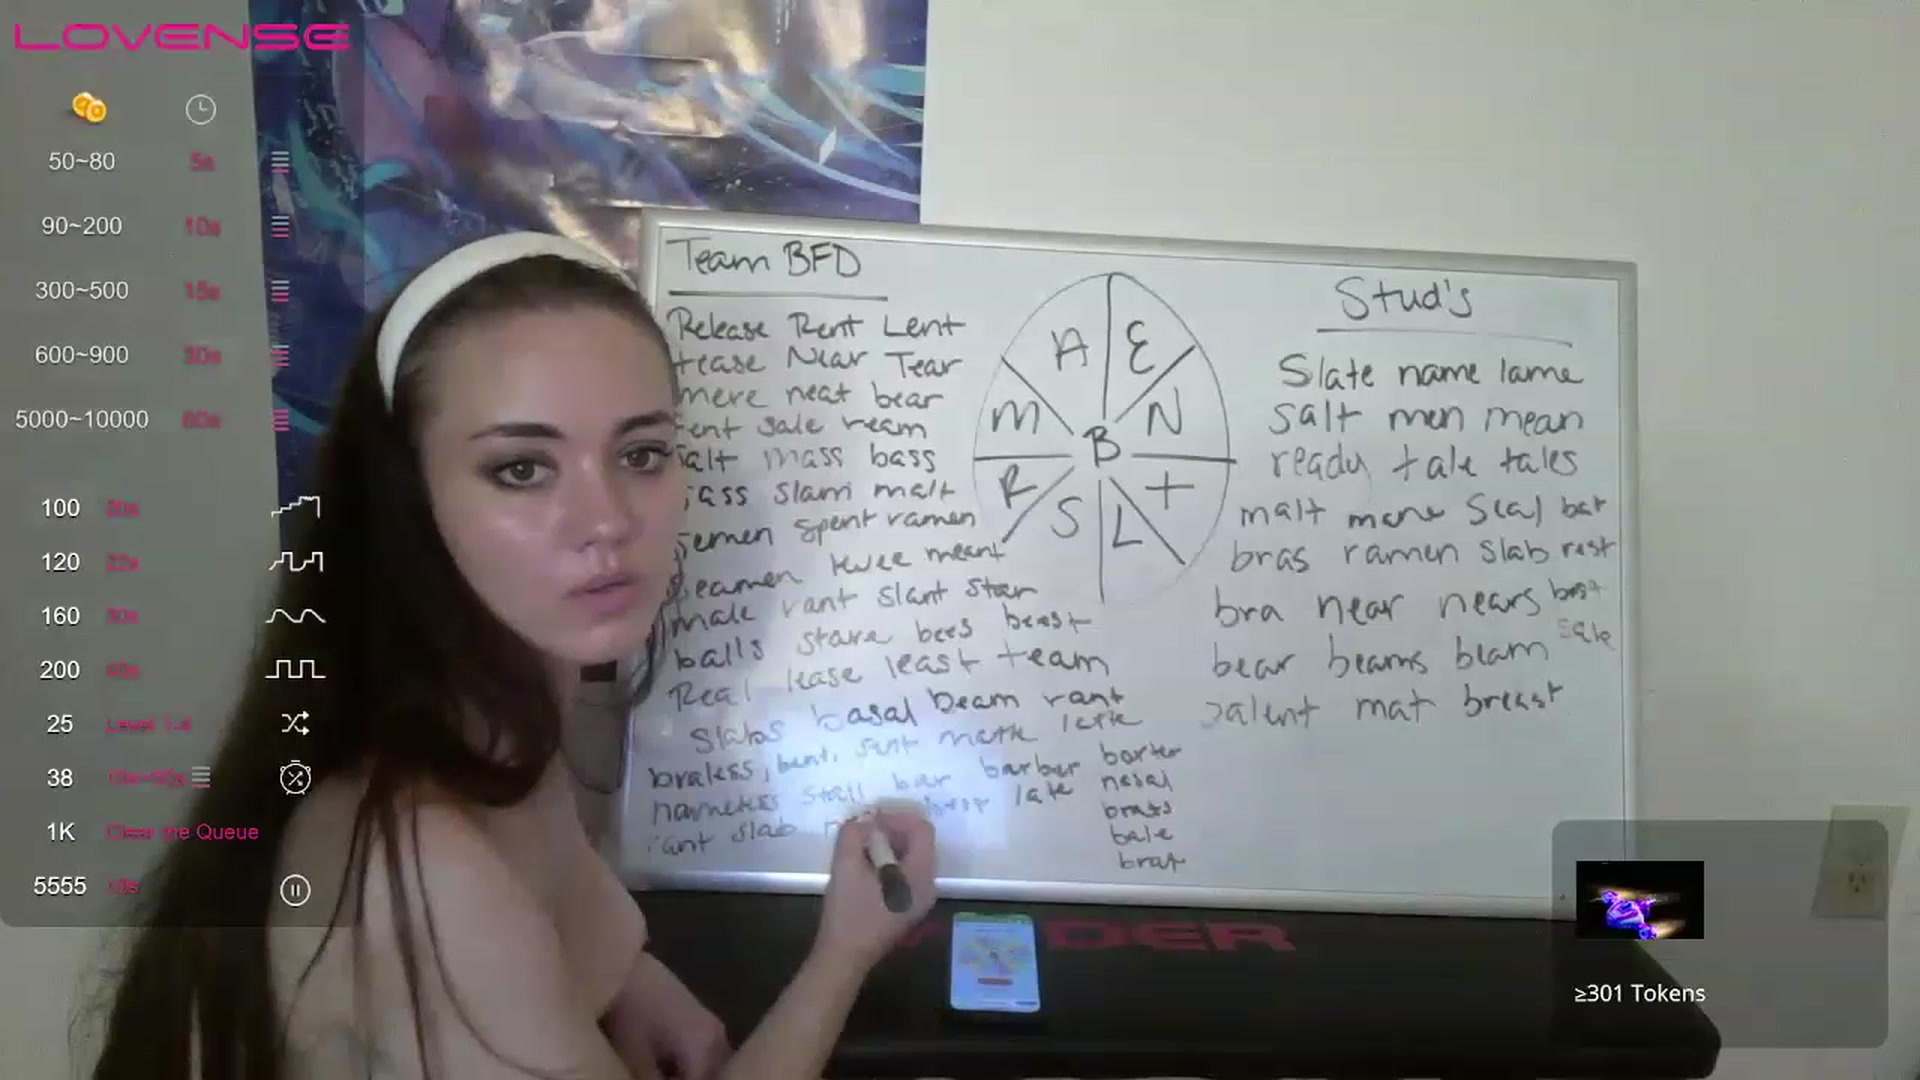 LOVENSE
50~80 5s
90~200 10s
300~500 15s
600~900 30s
5000~10000 60s
100 20s
120 22s
160 30s
200 40s
25 Level 1-4
38
1K Clear the Queue
5555 10s
Team BFD
Release Rent Lent
tease Near Tear
mere neat bear
sale ream
mass bass
slam malt
semen spent ramen
meant
male rant slant star
balls stare bees beast
Real lease least team
Slabs basal beam rant
braless, bent, sent
stall bar barber barter
slab late nasal
brats
bale
brat
A E
M N
B
R T
S L
Stud's
Slate name lame
salt men mean
ready tale tales
malt mane Seal bat
bras ramen slab rest
bra near nears best
bear beams beam sale
talent mat breast
DER
≥301 Tokens